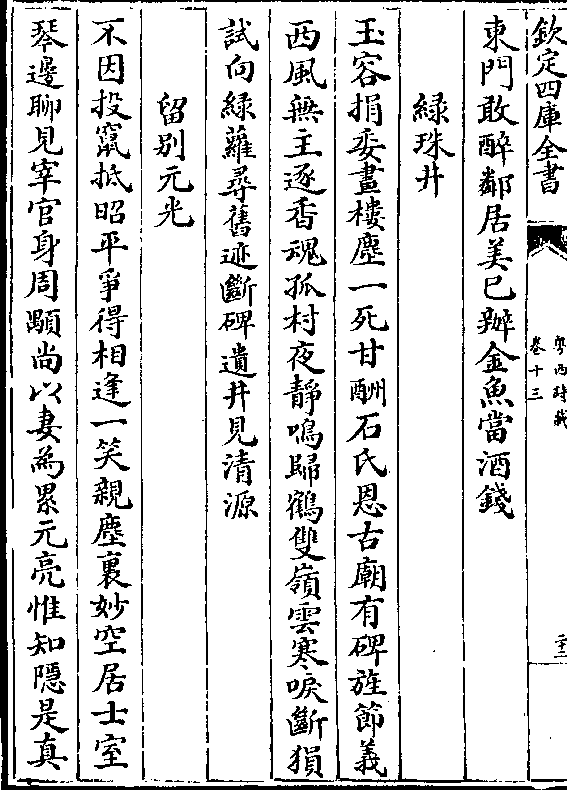 欽定四庫全書
粤西詩載
卷十三
二十二
東門敢醉鄰居美已辦金魚當酒錢
綠珠井
玉容捐委畫樓塵一死甘酬石氏恩古廟有碑旌節義
西風無主逐香魂孤村夜靜鳴歸鶴雙嶺雲寒唳斷猿
試向綠蘿尋舊迹斷碑遺井見清源
留别元光
不因投竄抵昭平爭得相逢一笑親塵裏妙空居士室
琴邊聊見宰官身周顒尚以妻為累元亮惟知隱是真